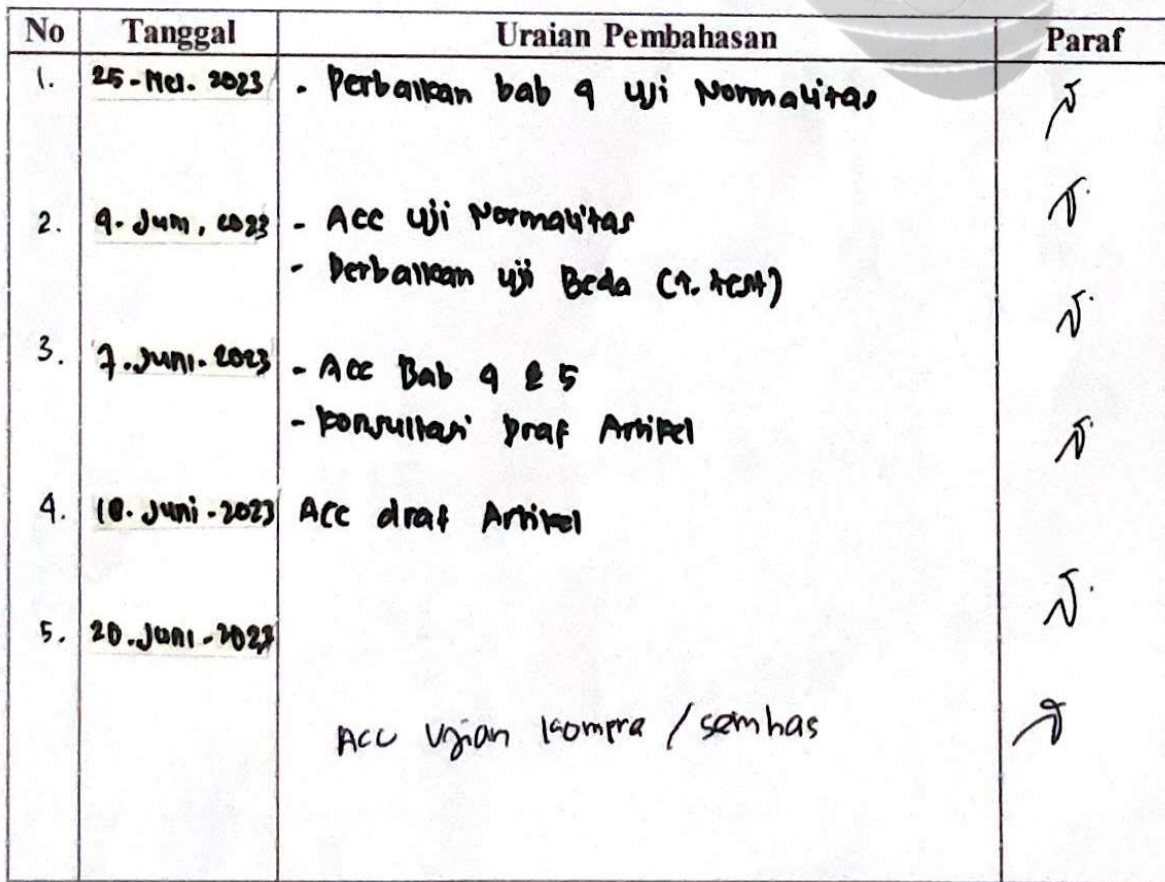 No Tanggal Uraian Pembahasan Paraf
1. 25-Mei. 2023 - Perbaikan bab 4 Uji Normalitas
2. 4. Juni, 2023 - Acc Uji Normalitas
- Perbaikan uji Beda (t. test)
3. 7. Juni. 2023 - Acc Bab 4 & 5
- Konsultasi Draf Artikel
4. 10. Juni - 2023 Acc draf Artikel
5. 20. Juni - 2023
Acc Ujian Kompra / semhas